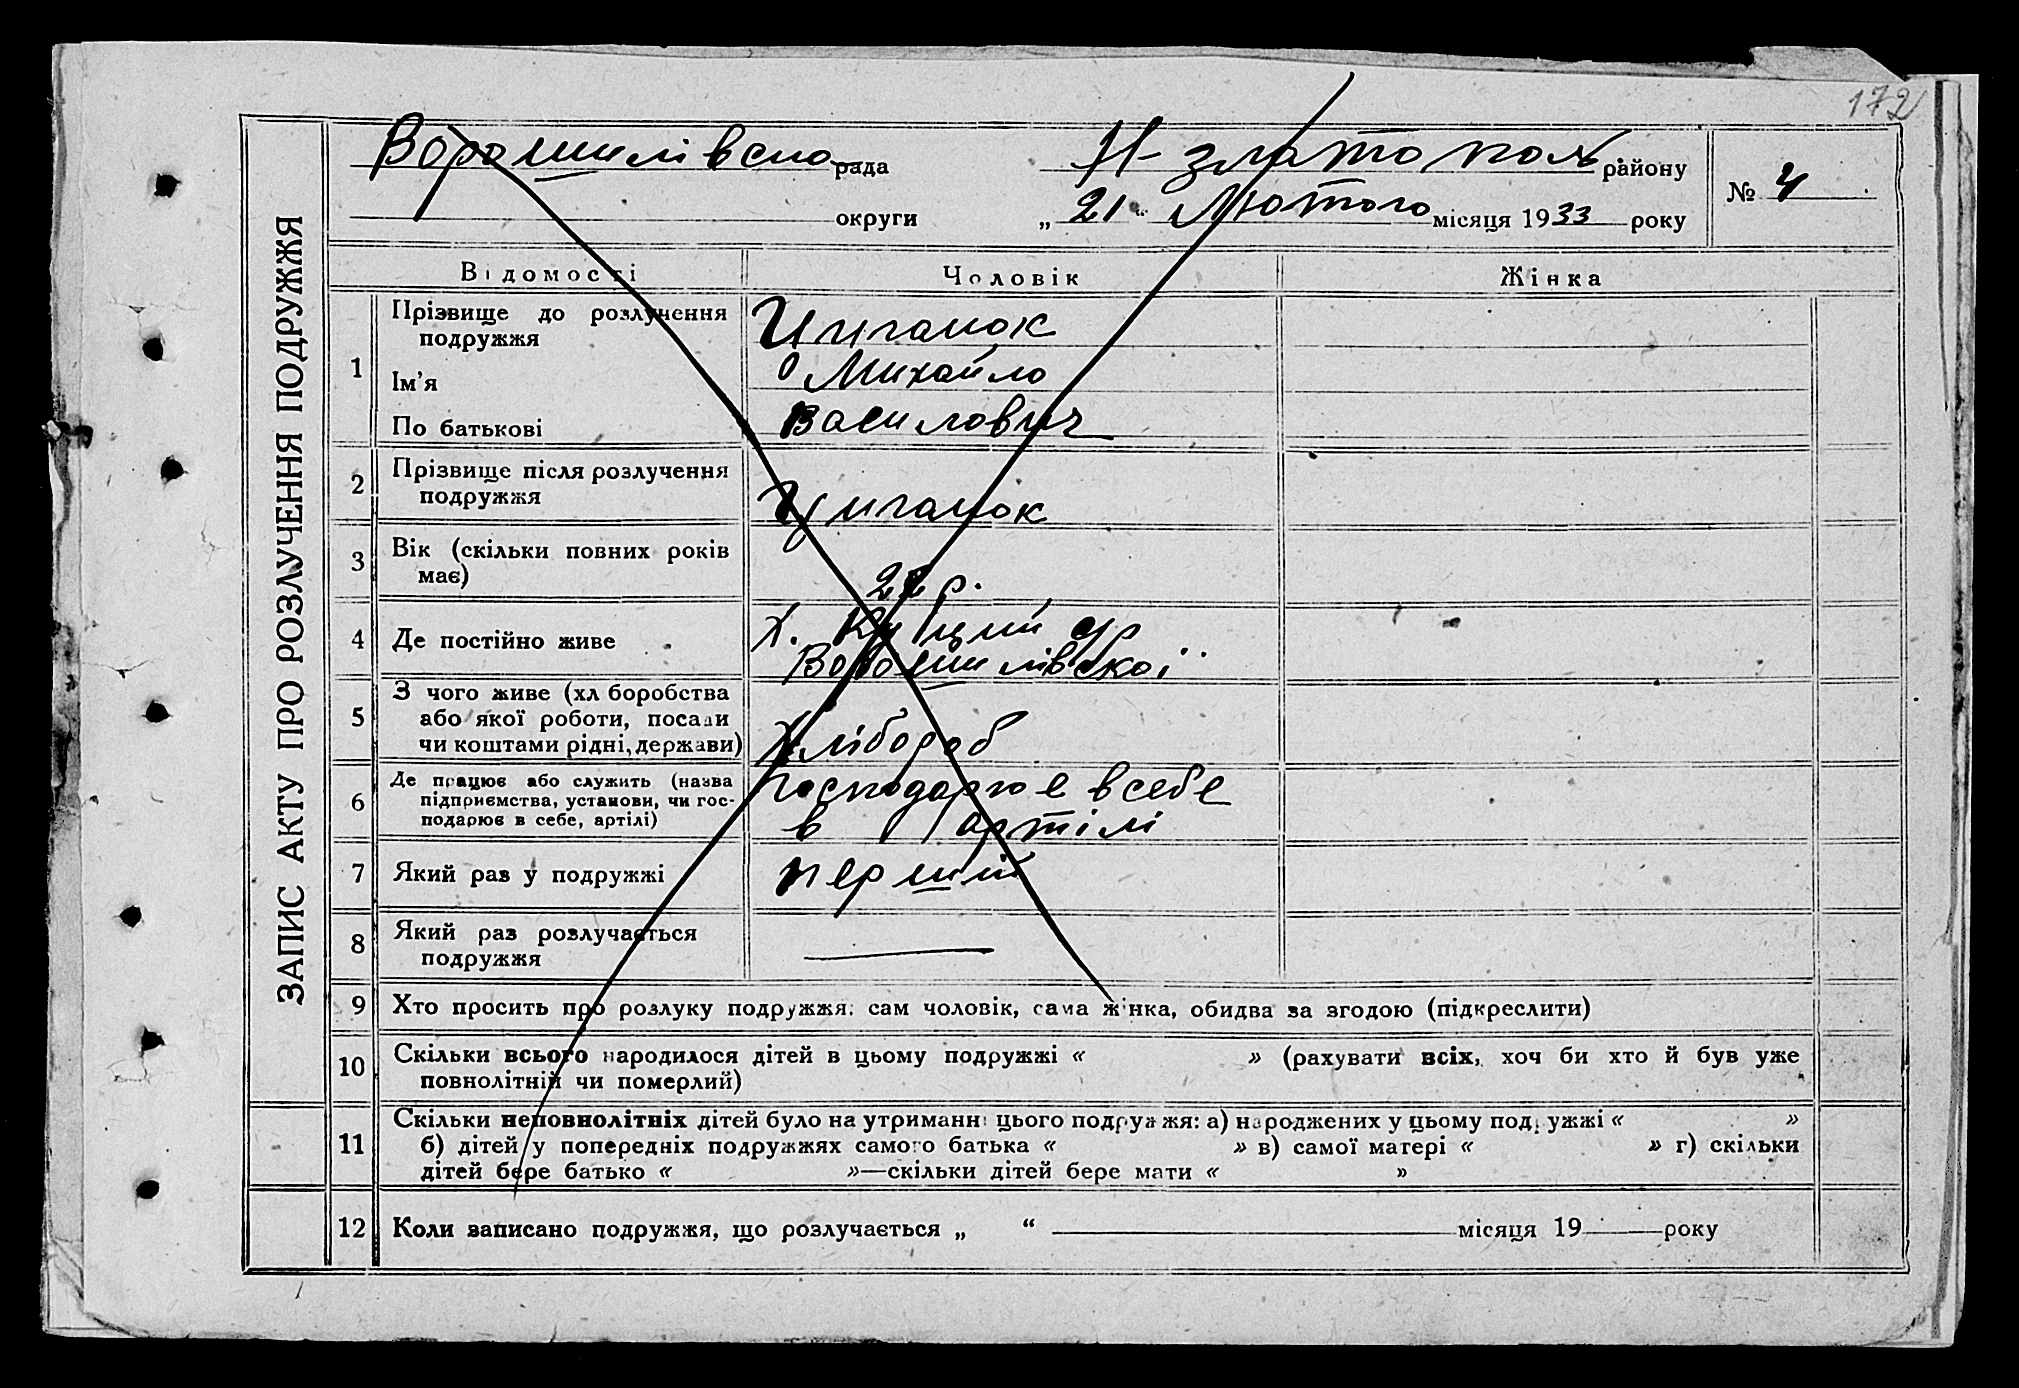 172
ЗАПИС АКТУ ПРО РОЗЛУЧЕННЯ ПОДРУЖЖЯ
Ворошилівсна рада Н-златополь району
№ 4
округи „ 21 “ Лютого місяця 1933 року
Відомості Чоловік Жінка
1 Прізвище до розлучення подружжя Циганок
Ім’я Михайло
По батькові Василович
2 Прізвище після розлучення подружжя Циганок
3 Вік (скільки повних років має) р.
4 Де постійно живе Х. с/р
Ворошилівської
5 З чого живе (хл боробства або якої роботи, посади чи коштами рідні, держави) Хлібороб
6 Де працює або служить (назва підприємства, установи, чи господарює в себе, артілі) господарює всебе
в артілі
7 Який раз у подружжі перший
8 Який раз розлучається подружжя —
9 Хто просить про розлуку подружжя: сам чоловік, сама жінка, обидва за згодою (підкреслити)
10 Скільки всього народилося дітей в цьому подружжі « » (рахувати всіх, хоч би хто й був уже
повнолітній чи померлий)
11 Скільки неповнолітніх дітей було на утриманні цього подружжя: а) народжених у цьому подружжі « »
б) дітей у попередніх подружжях самого батька « » в) самої матері « » г) скільки
дітей бере батько « »—скільки дітей бере мати « »
12 Коли записано подружжя, що розлучається „ “ місяця 19 року